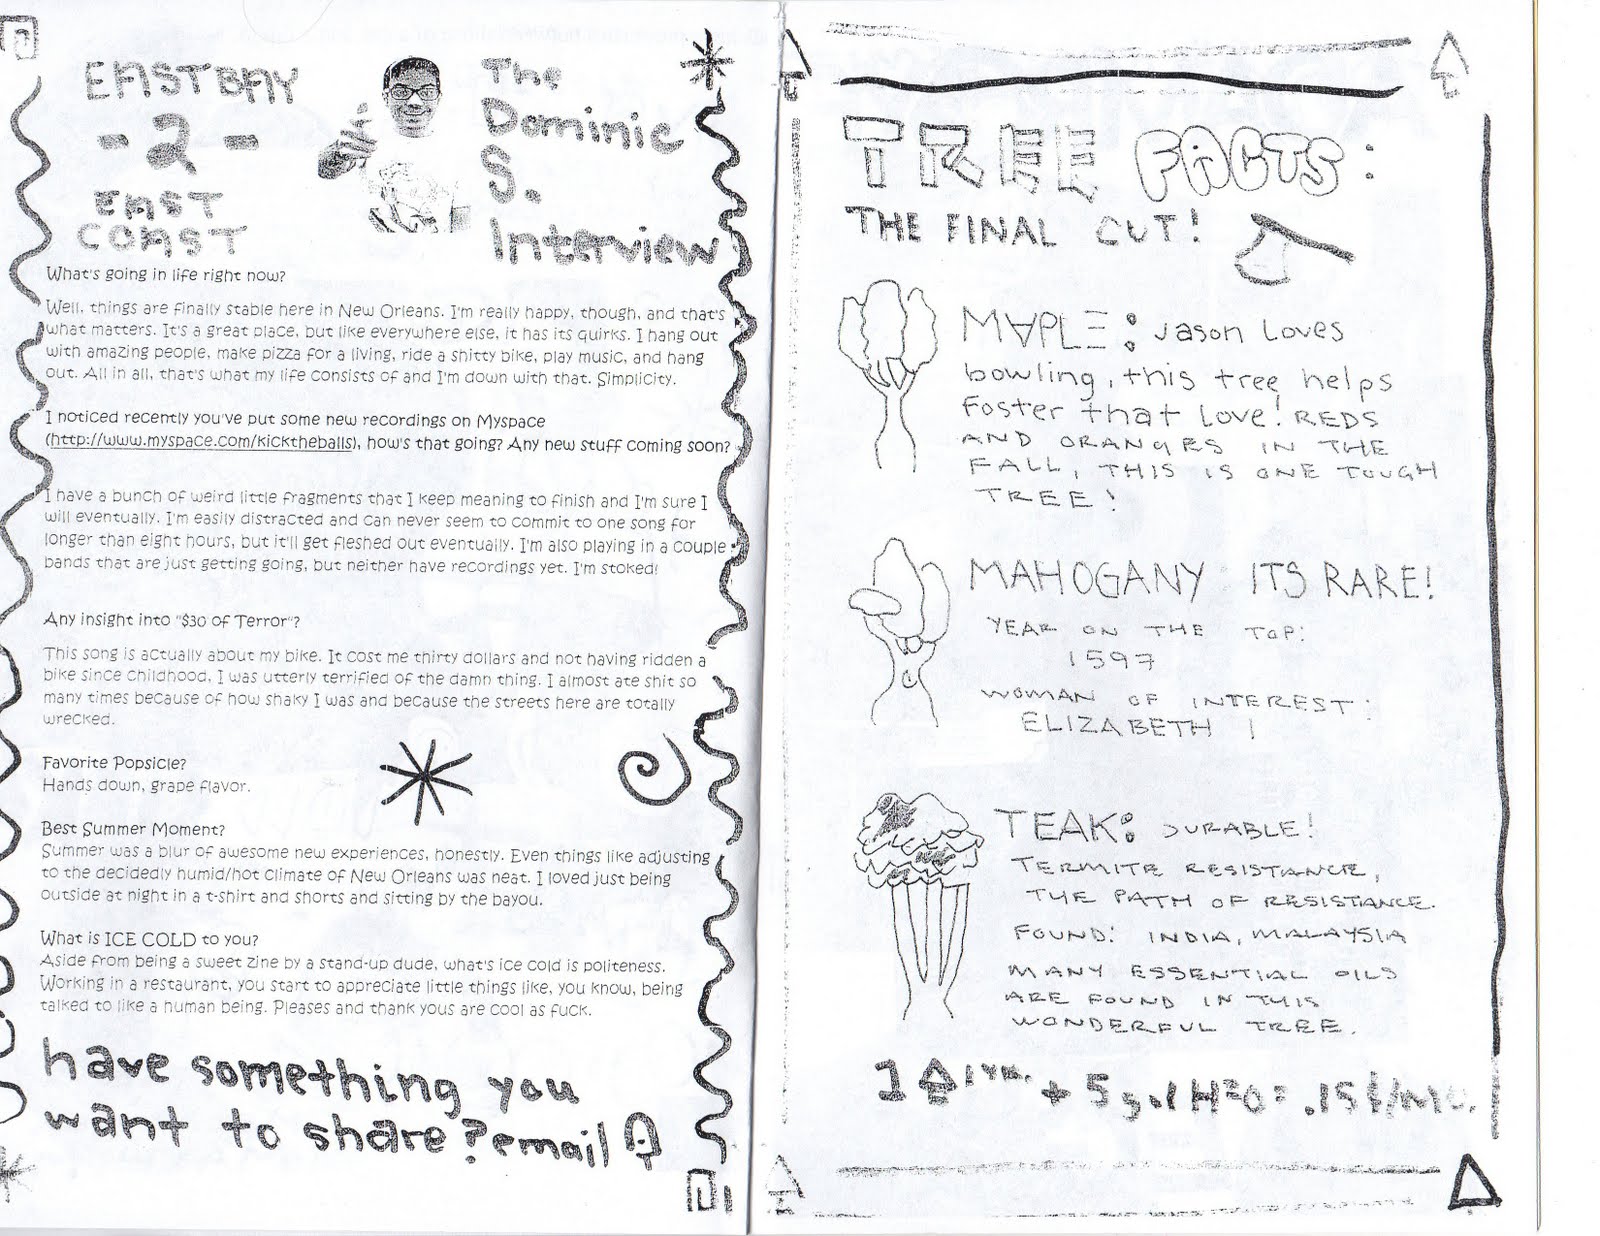 EASTBAY
- 2 -
EAST
COAST
The
Dominic
S.
Interview
What's going in life right now?
Well, things are finally stable here in New Orleans. I'm really happy, though, and that's
what matters. It's a great place, but like everywhere else, it has its quirks. I hang out
with amazing people, make pizza for a living, ride a shitty bike, play music, and hang
out. All in all, that's what my life consists of and I'm down with that. Simplicity.
I noticed recently you've put some new recordings on Myspace
(http://www.myspace.com/kicktheballs), how's that going? Any new stuff coming soon?
I have a bunch of weird little fragments that I keep meaning to finish and I'm sure I
will eventually. I'm easily distracted and can never seem to commit to one song for
longer than eight hours, but it'll get fleshed out eventually. I'm also playing in a couple
bands that are just getting going, but neither have recordings yet. I'm stoked!
Any insight into "$30 of Terror"?
This song is actually about my bike. It cost me thirty dollars and not having ridden a
bike since childhood, I was utterly terrified of the damn thing. I almost ate shit so
many times because of how shaky I was and because the streets here are totally
wrecked.
Favorite Popsicle?
Hands down, grape flavor.
Best Summer Moment?
Summer was a blur of awesome new experiences, honestly. Even things like adjusting
to the decidedly humid/hot climate of New Orleans was neat. I loved just being
outside at night in a t-shirt and shorts and sitting by the bayou.
What is ICE COLD to you?
Aside from being a sweet zine by a stand-up dude, what's ice cold is politeness.
Working in a restaurant, you start to appreciate little things like, you know, being
talked to like a human being. Pleases and thank yous are cool as fuck.
have something you
want to share? email
TREE FACTS:
THE FINAL CUT!
MAPLE: Jason Loves
bowling, this tree helps
foster that love! REDS
AND ORANGES IN THE
FALL, THIS IS ONE TOUGH
TREE!
MAHOGANY ITS RARE!
YEAR ON THE TOP:
1597
WOMAN OF INTEREST:
ELIZABETH I
TEAK: DURABLE!
TERMITE RESISTANCE,
THE PATH OF RESISTANCE.
FOUND: INDIA, MALAYSIA
MANY ESSENTIAL OILS
ARE FOUND IN THIS
WONDERFUL TREE.
1 1 YR. + 5 gal H2O = .15¢/MO.